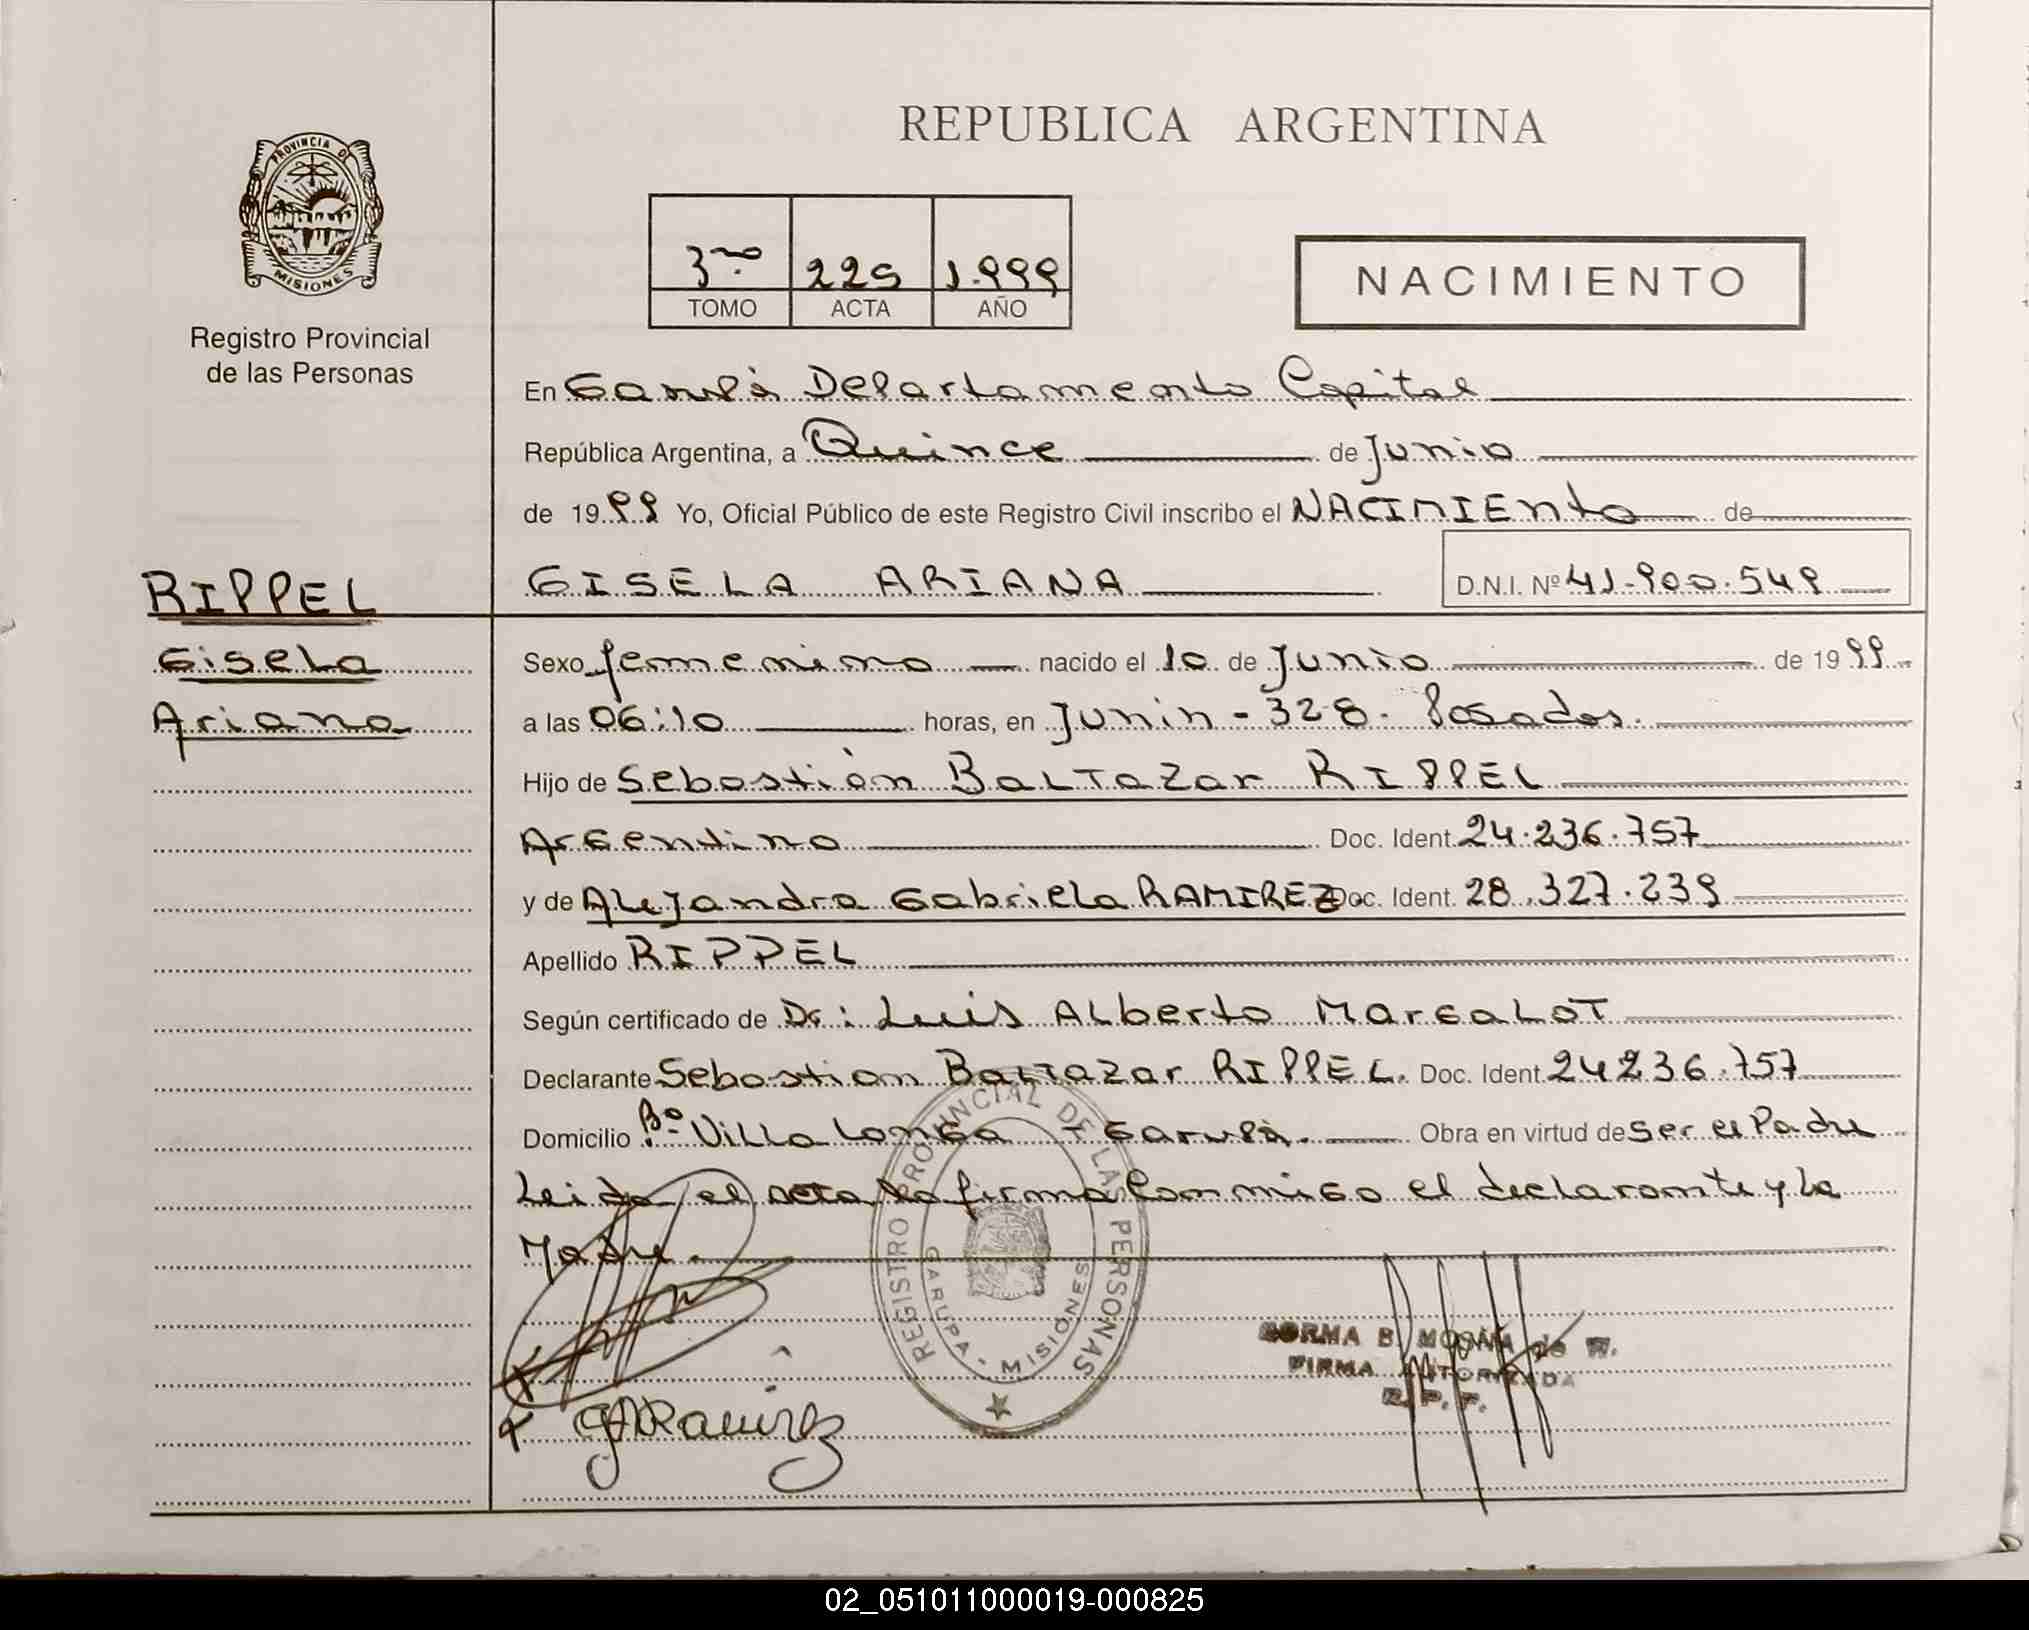 REPUBLICA ARGENTINA
PROVINCIA DE
MISIONES
Registro Provincial
de las Personas
3ro. 225 1.999
TOMO ACTA AÑO
NACIMIENTO
En Garupá Departamento Capital
República Argentina, a Quince de Junio
de 1999 Yo, Oficial Público de este Registro Civil inscribo el NACIMIENTO de
GISELA ARIANA D.N.I. Nº 41.900.549
RIPPEL
Gisela
Ariana
Sexo femenino nacido el 10 de Junio de 1999
a las 06:10 horas, en Junin - 328 - Posadas.
Hijo de Sebastián Baltazar RIPPEL
Argentino Doc. Ident. 24.236.757
y de Alejandra Gabriela RAMIREZ Doc. Ident. 28.327.239
Apellido RIPPEL
Según certificado de Dr: Luis Alberto Margalot
Declarante Sebastian Baltazar RIPPEL. Doc. Ident. 24236.757
Domicilio Bº Villa Longa - Garupá. Obra en virtud de ser el Padre
Leida el acta la firma Conmigo el declarante y la
Madre.
REGISTRO PROVINCIAL DE LAS PERSONAS
GARUPA - MISIONES
NORMA B. de R.
FIRMA AUTORIZADA
R. P. P.
GARamirez
02_051011000019-000825